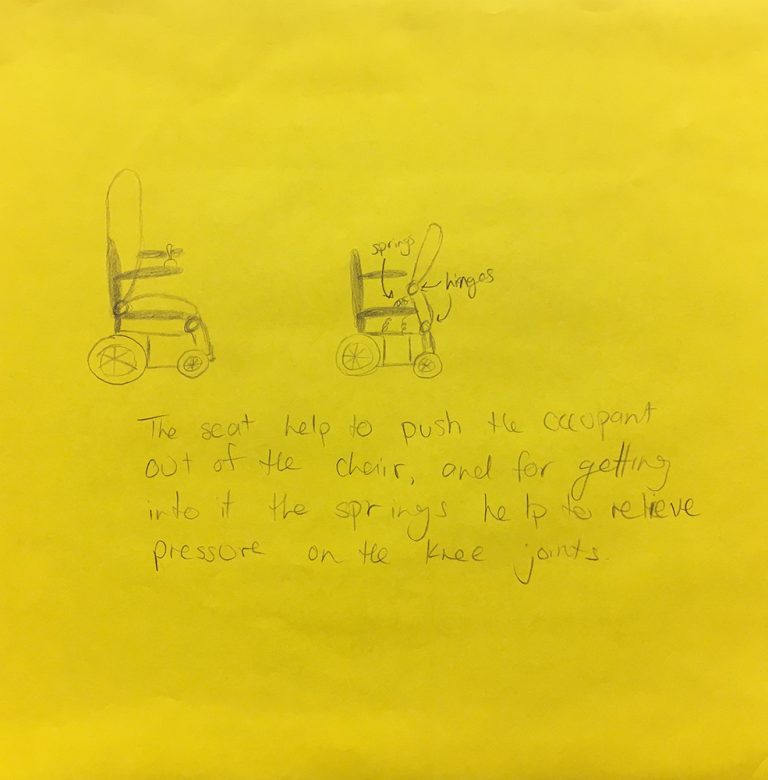 springs
hinges
The seat help to push the occupant
out of the chair, and for getting
into it the springs help to relieve
pressure on the knee joints.